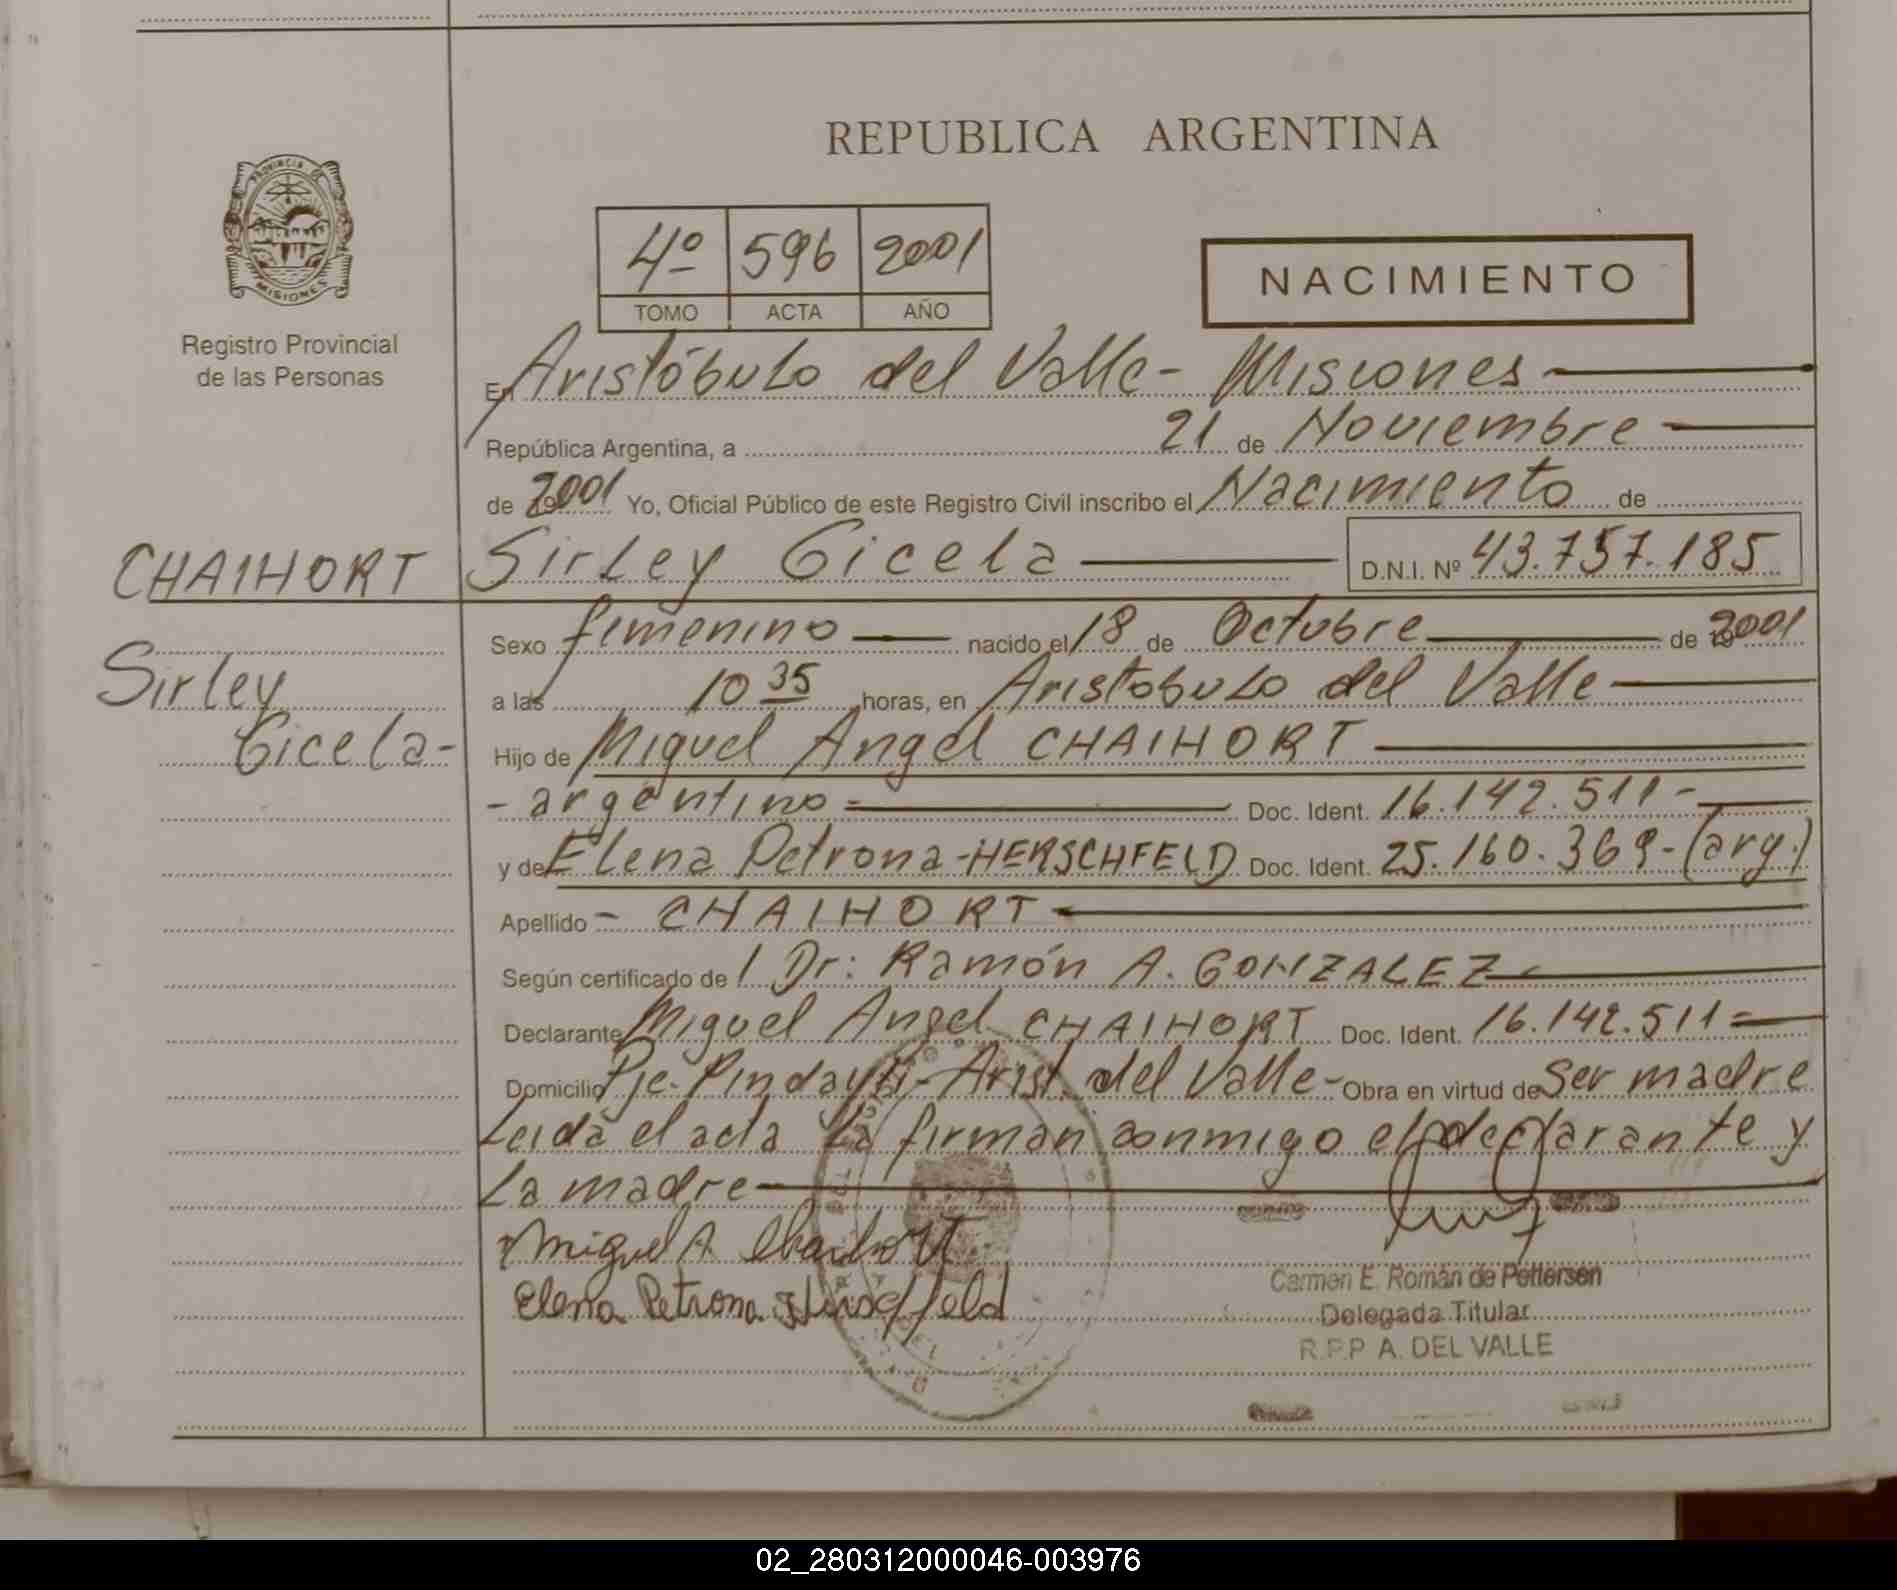 REPUBLICA ARGENTINA
PROVINCIA DE
MISIONES
Registro Provincial
de las Personas
4º 596 2001
TOMO ACTA AÑO
NACIMIENTO
En Aristóbulo del Valle - Misiones
República Argentina, a 21 de Noviembre
de 2001 Yo, Oficial Público de este Registro Civil inscribo el Nacimiento de
CHAIHORT Sirley Gicela D.N.I. Nº 43.757.185
Sexo femenino nacido el 18 de Octubre de 2001
Sirley
a las 10 35 horas, en Aristobulo del Valle
Gicela-
Hijo de Miguel Angel CHAIHORT
- argentino = Doc. Ident. 16.142.511-
y de Elena Petrona - HERSCHFELD Doc. Ident. 25.160.369- (arg.)
Apellido - CHAIHORT
Según certificado de / Dr: Ramón A. GONZALEZ
Declarante Miguel Angel CHAIHORT Doc. Ident. 16.142.511=
Domicilio Pje. Pindayti- Arist. del Valle- Obra en virtud de Ser madre
Leida el acta la firman conmigo el declarante y
La madre
Miguel A Chaihort
Elena Petrona Herschfeld
Carmen E. Román de Pettersen
Delegada Titular
R.P.P A. DEL VALLE
02_280312000046-003976